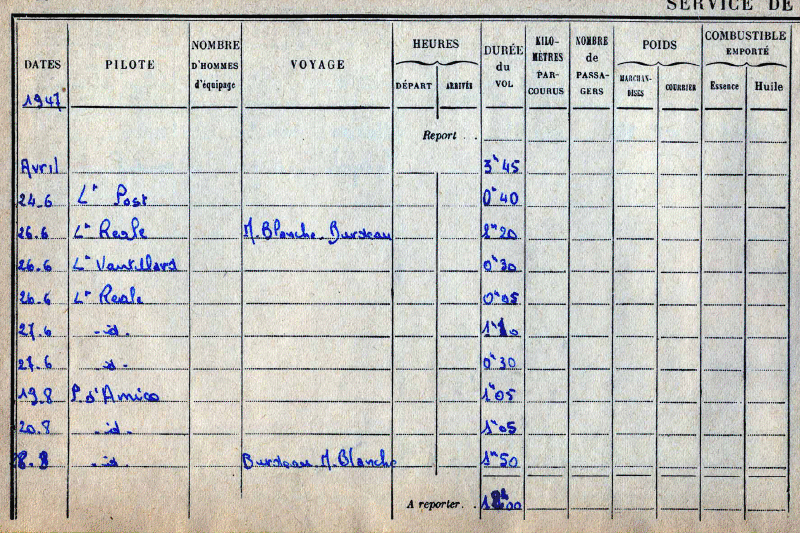 SERVICE DE
DATES PILOTE NOMBRE D'HOMMES d'équipage VOYAGE HEURES DÉPART ARRIVÉE DURÉE du VOL KILOMÈTRES PARCOURUS NOMBRE de PASSAGERS POIDS MARCHANDISES COURRIER COMBUSTIBLE EMPORTÉ Essence Huile
1947
Report . .
Avril 3h45
24.6 Lt Post 0h40
26.6 Lt Reale M.Blanche-Burdeau 20
26.6 Lt Vautillard 0h30
26.6 Lt Reale 0h05
27.6 -id-
27.6 id- 0h30
19.8 P. d'Amico 1h05
20.8 -id- 1h05
8.8 -id Burdeau-M.Blanche 1h50
A reporter. . 00